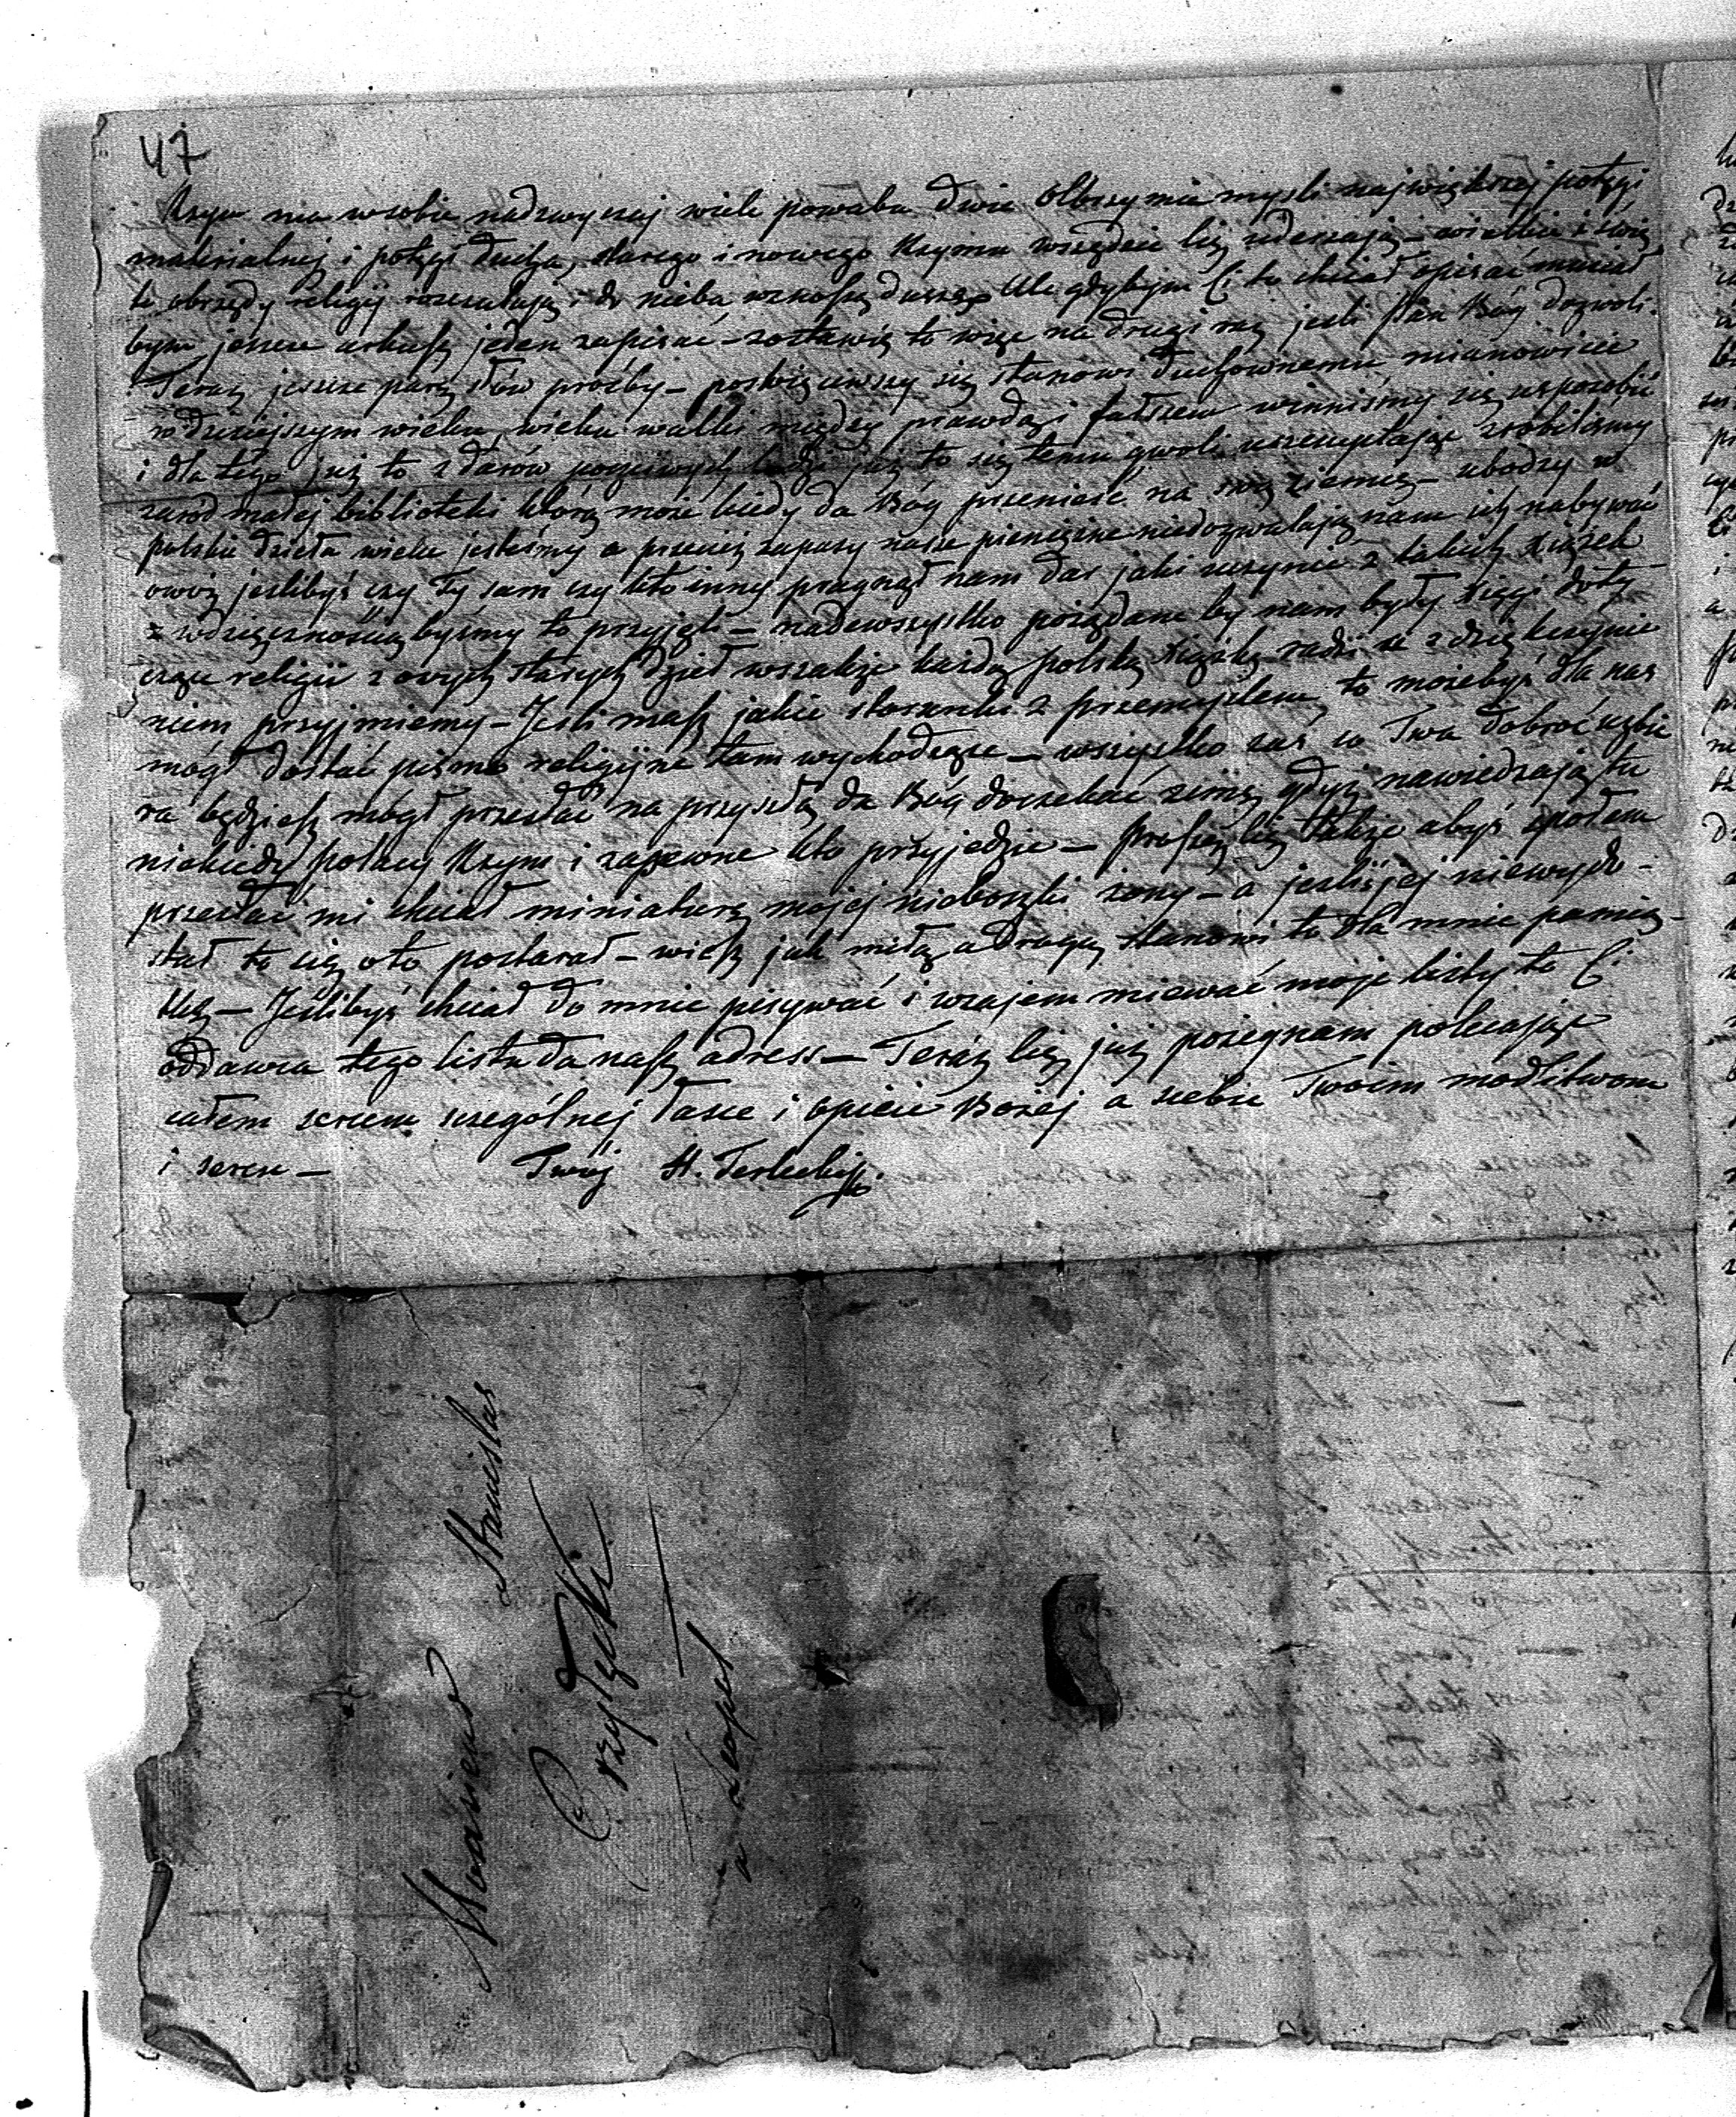 47
Rzym ma w sobie nadzwyczaj wiele powabu dwie olbrzymie mysli największej potęgi
materialnej i potęgi ducha, starego i nowego Rzymu wszędzie Cię uderzają – wielkie i świę
te obrzędy religij rozczulają i do nieba wznoszą duszę Ale gdybym Ci to chciał opisać musiał
bym jeszcze arkusz jeden zapisać – zostawię to więc na drugi raz jesli Pan Bóg dozwoli.
Teraz jeszcze parę słów proźby – poswięciwszy się stanowi duchownemu mianowicie
w dzisiejszym wieku, wieku walki między prawdą i fałszem winniśmy się usposobić
i dla tego już to z darów poczciwych ludzi już to się temu gwoli uszczuplając zrobiliśmy
zaród małej biblioteki którą może kiedy da Bóg przenieść na swą ziemię – ubodzy w
polskie dzieła wielce jesteśmy a przecież zapasy nasze pieniężne niedozwalają nam ich nabywać
owóż jeslibyś czy Ty sam czy kto inny pragnął nam dar jaki uczynić z takich książek
z wdzięcznością byśmy to przyjęli – nadewszystko pożądane by nam były xięgi doty
czące religii z owych starych dzieł wszakże każdą polską xiążkę radzi i z dzięk czynie
niem przyjmiemy – Jesli masz jakie stosunki z Przemyslem to możebyś dla nas
mógł dostać pisma religijne tam wychodzące – wszystko zaś co Twa dobroć uzbie
ra będziesz mógł przesłać na przyszłą da Bóg doczekać zimę gdyż nawiedzają tu
niekiedy polacy Rzym i zapewne kto przyjedzie – Proszę Cię także abyś społem
przesłać mi chciał miniaturę mojej nieboszki żony – a jesliś jej niewydo-
stał to się oto postarał – wiesz jak miłą a drogą stanowi to dla mnie pamią-
tkę – Jeślibyś chciał do mnie pisywać i wzajem miewać moje listy to Ci
oddawca tego listu da nasz adress – Teraz Cię już pożegnam polecając
całem sercem szczególnej łasce i opiece Bożej a siebie Twoim modlitwom
i sercu – Twój H. Terlecki
Monsieur Stanislas
Przyłęcki
a Leopol